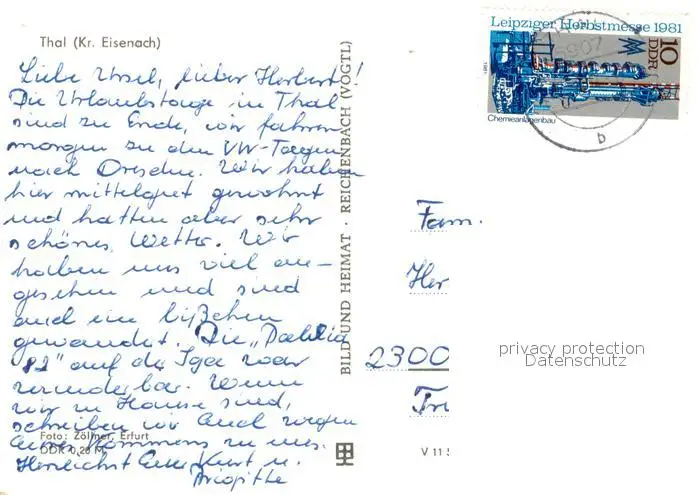 Thal (Kr. Eisenach)
Liebe Ursel, lieber Herbert!
Die Urlaubstage in Thal
sind zu Ende, wir fahren
morgen zu den VW-Tagen
nach Dresden. Wir haben
hier mittelgut gewohnt
und hatten aber sehr
schönes Wetter. Wir
haben uns viel an-
gesehen und sind
auch ein bißchen
gewandert. Die „Dahlia
82" auf der Iga war
wunderbar. Wenn
wir zu Hause sind,
schreiben wir Euch wegen
Eures Kommens zu uns.
Herzlichst Eure Kurt u.
Brigitte
Foto: Zöllner, Erfurt
DDR 0,20 M
BILD UND HEIMAT · REICHENBACH (VOGTL)
Leipziger Herbstmesse 1981
10
DDR
1981
Chemieanlagenbau
b
Fam.
Her
2300
privacy protection
Datenschutz
V 11 5